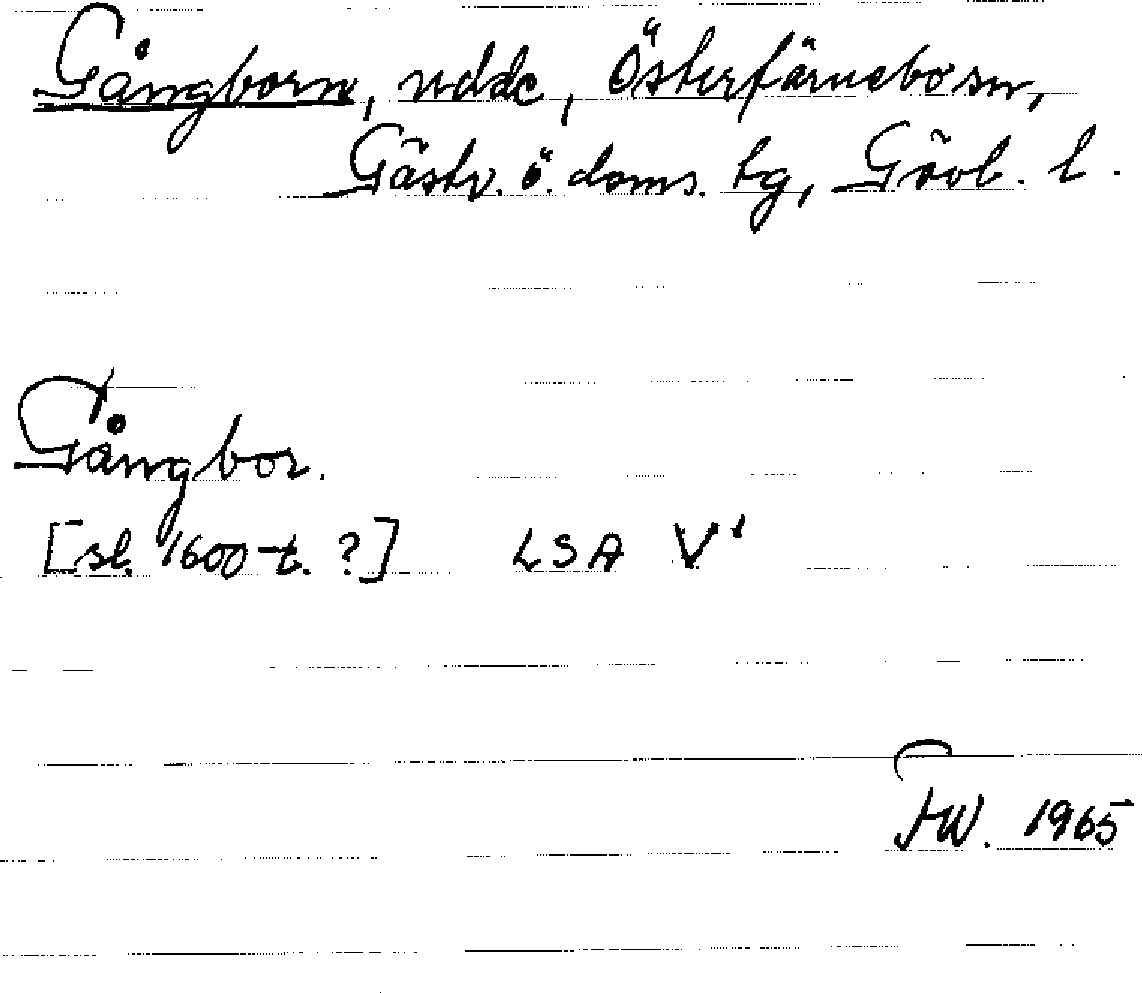 Gångborn, udde, Österfärnebo sn,
Gästr. ö. doms. tg, Gävb. l.
Gångbor.
[sl. 1600-t. ?] LSA V¹
FW. 1965